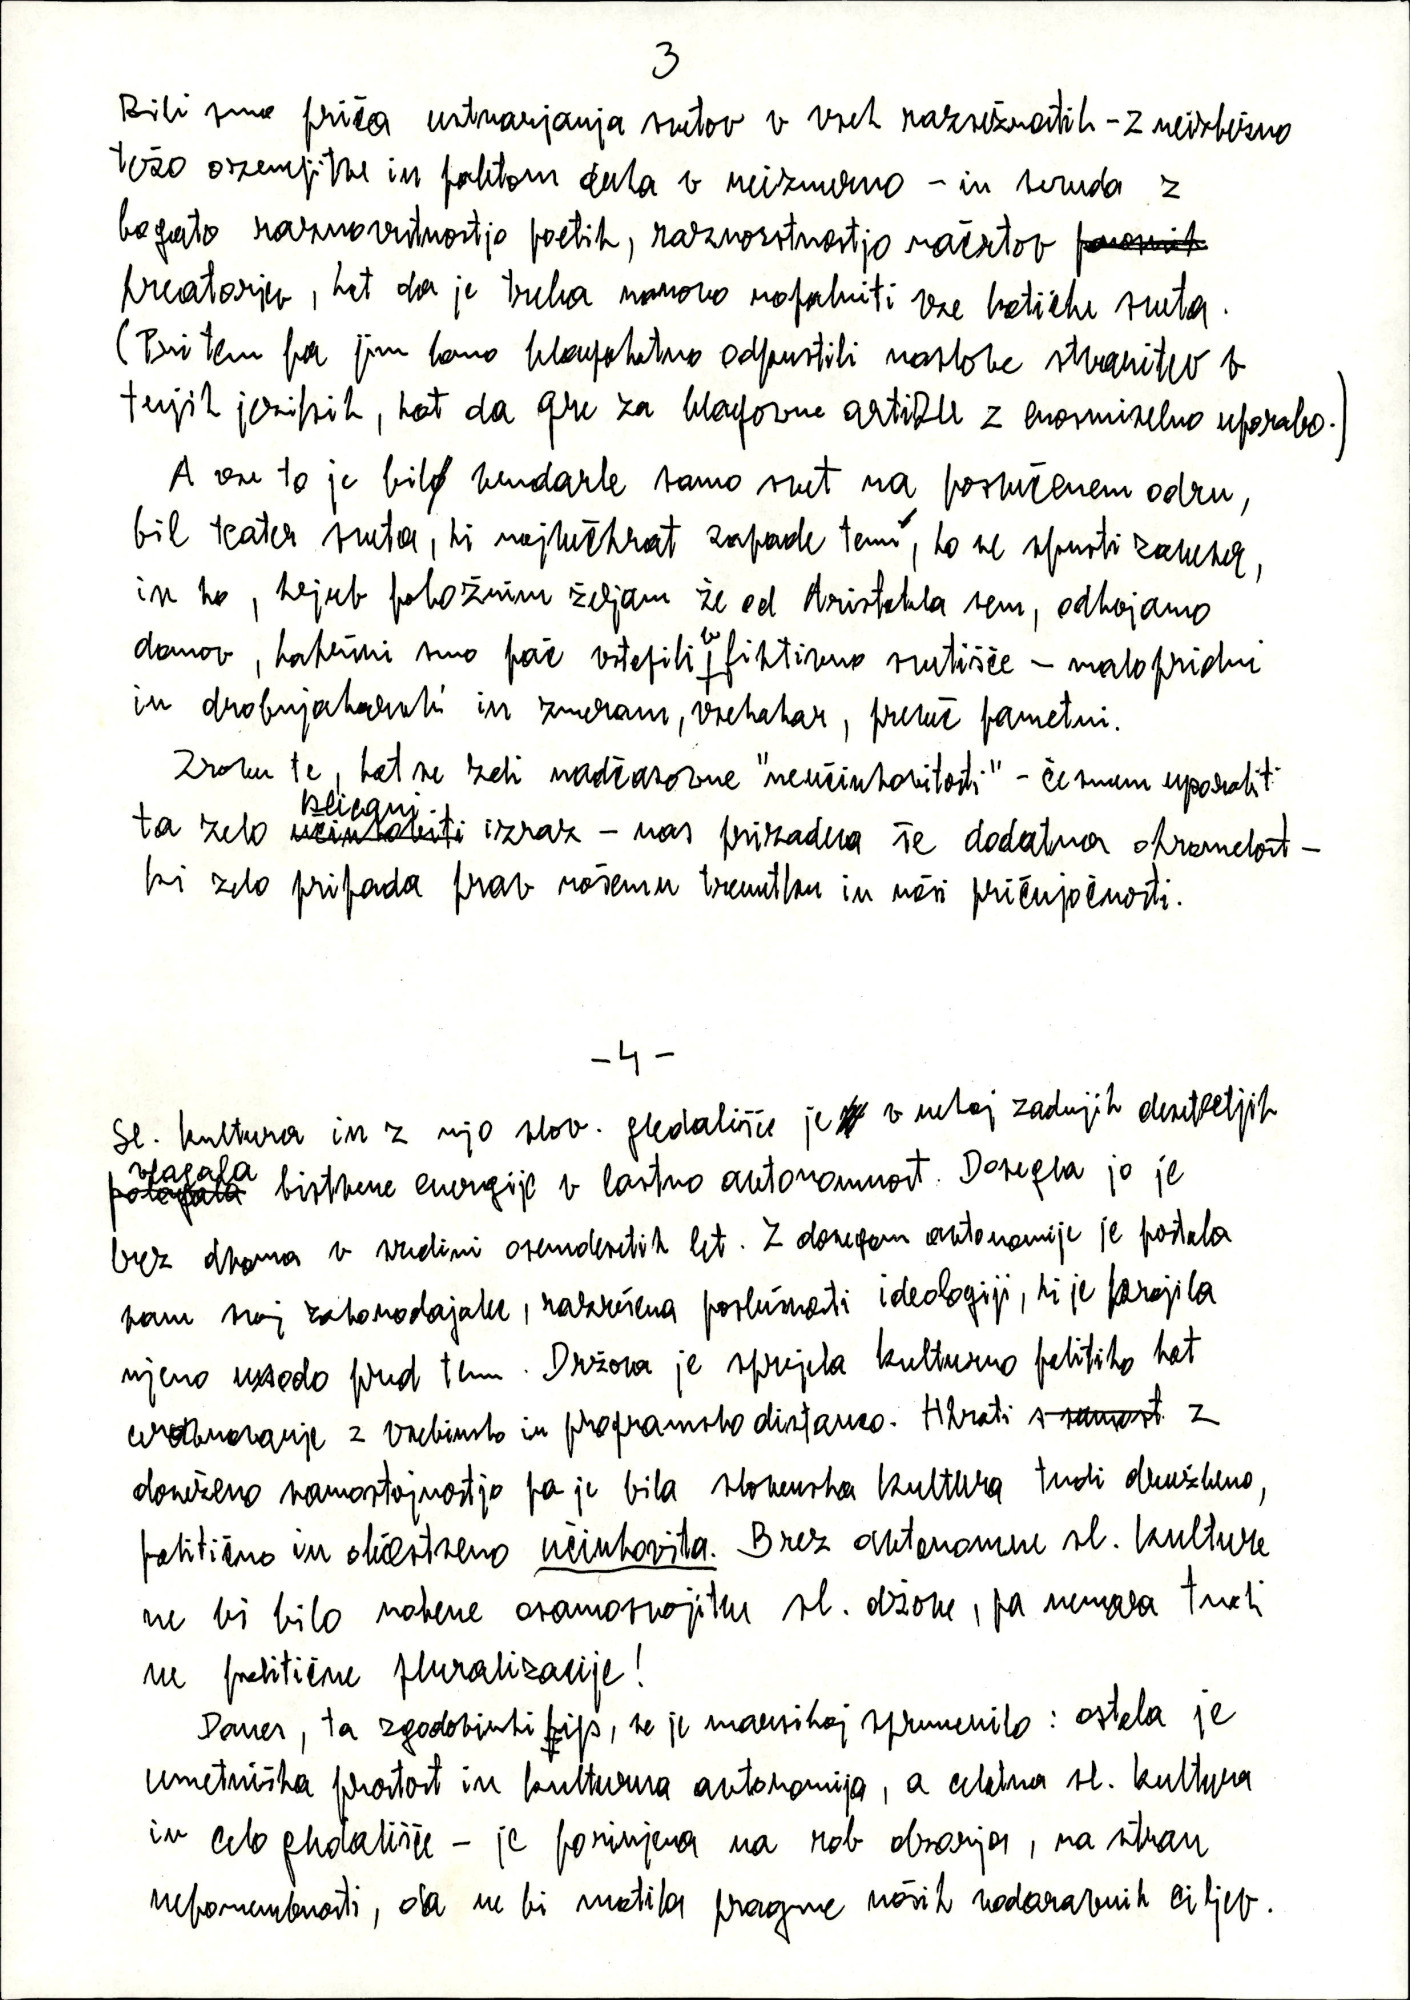 3
Bili smo priča ustvarjanja svetov v vseh razsežnostih - z neizbežno
težo ozemljitve in poletom duha v neizmerno - in seveda z
bogato raznovrstnostjo poetik, raznorstnostjo načrtov
kreatorjev, kot da je treba nanovo napolniti vse kotičke sveta.
(Pri tem pa jim bomo blagohotno odpustili naslove stvaritev v
tujih jezikih, kot da gre za blagovne artikle z enosmiselno uporabo.)
A vse to je bil vendarle samo svet na posvečenem odru,
bil teater sveta, ki največkrat zapade temi, ko se spusti zavesa,
in ko, kljub pobožnim željam že od Aristotela sem, odhajamo
domov, kakršni smo pač vstopili v fiktivno svetišče - malopridni
in drobnjakarski in zmeraj, vsekakor, preveč pametni.
Zraven te, kot se zdi nadčasovne "neučinkovitosti" - če smem uporabiti
ta zelo učinkoviti izraz - nas prizadeva še dodatna ohromelost -
ki zelo pripada prav našemu trenutku in naši pričujočnosti.
- 4 -
Sl. kultura in z njo slov. gledališče je v nekaj zadnjih desetletjih
vlagala
polagala bistvene energije v lastno avtonomnost. Dosegla jo je
brez dvoma v sredini osemdesetih let. Z dosegom avtonomije je postala
sam svoj zakonodajalec, razrešena poslušnosti ideologiji, ki je krojila
njeno usodo pred tem. Država je sprejela kulturno politiko kot
uravnavanje z vsebinsko in programsko distanco. Hkrati s samost z
doseženo samostojnostjo pa je bila slovenska kultura tudi družbeno,
politično in občestveno učinkovita. Brez avtonomne sl. kulture
ne bi bilo nobene osamosvojitve sl. džove, pa nemara tudi
ne politične pluralizacije!
Danes, ta zgodovinski hip, se je marsikaj spremenilo : ostala je
umetniška prostost in kulturna avtonomija, a celotna sl. kultura
in celo gledališče - je porinjena na rob obzorja, na stran
nepomembnosti, da ne bi motila pragme naših vsodarabnih ciljev.